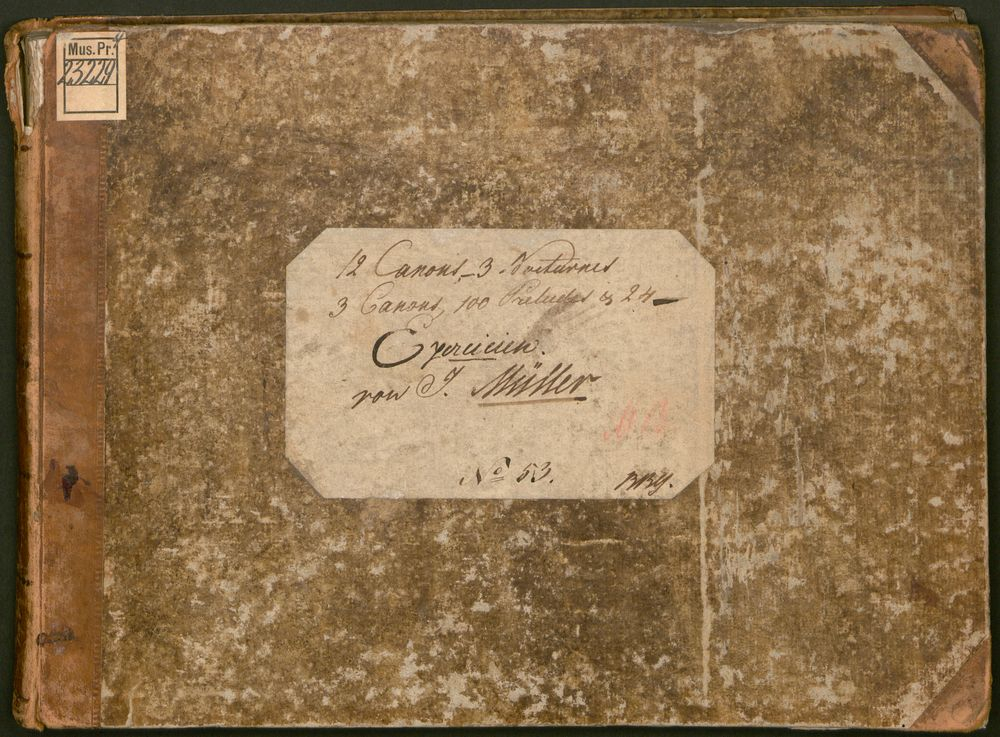 4 Mus. Pr.
23229
12 Canons, 3 Nocturnes
3 Canons, 100 Preludes & 24
Exercicien.
von J. Müller
No 53.